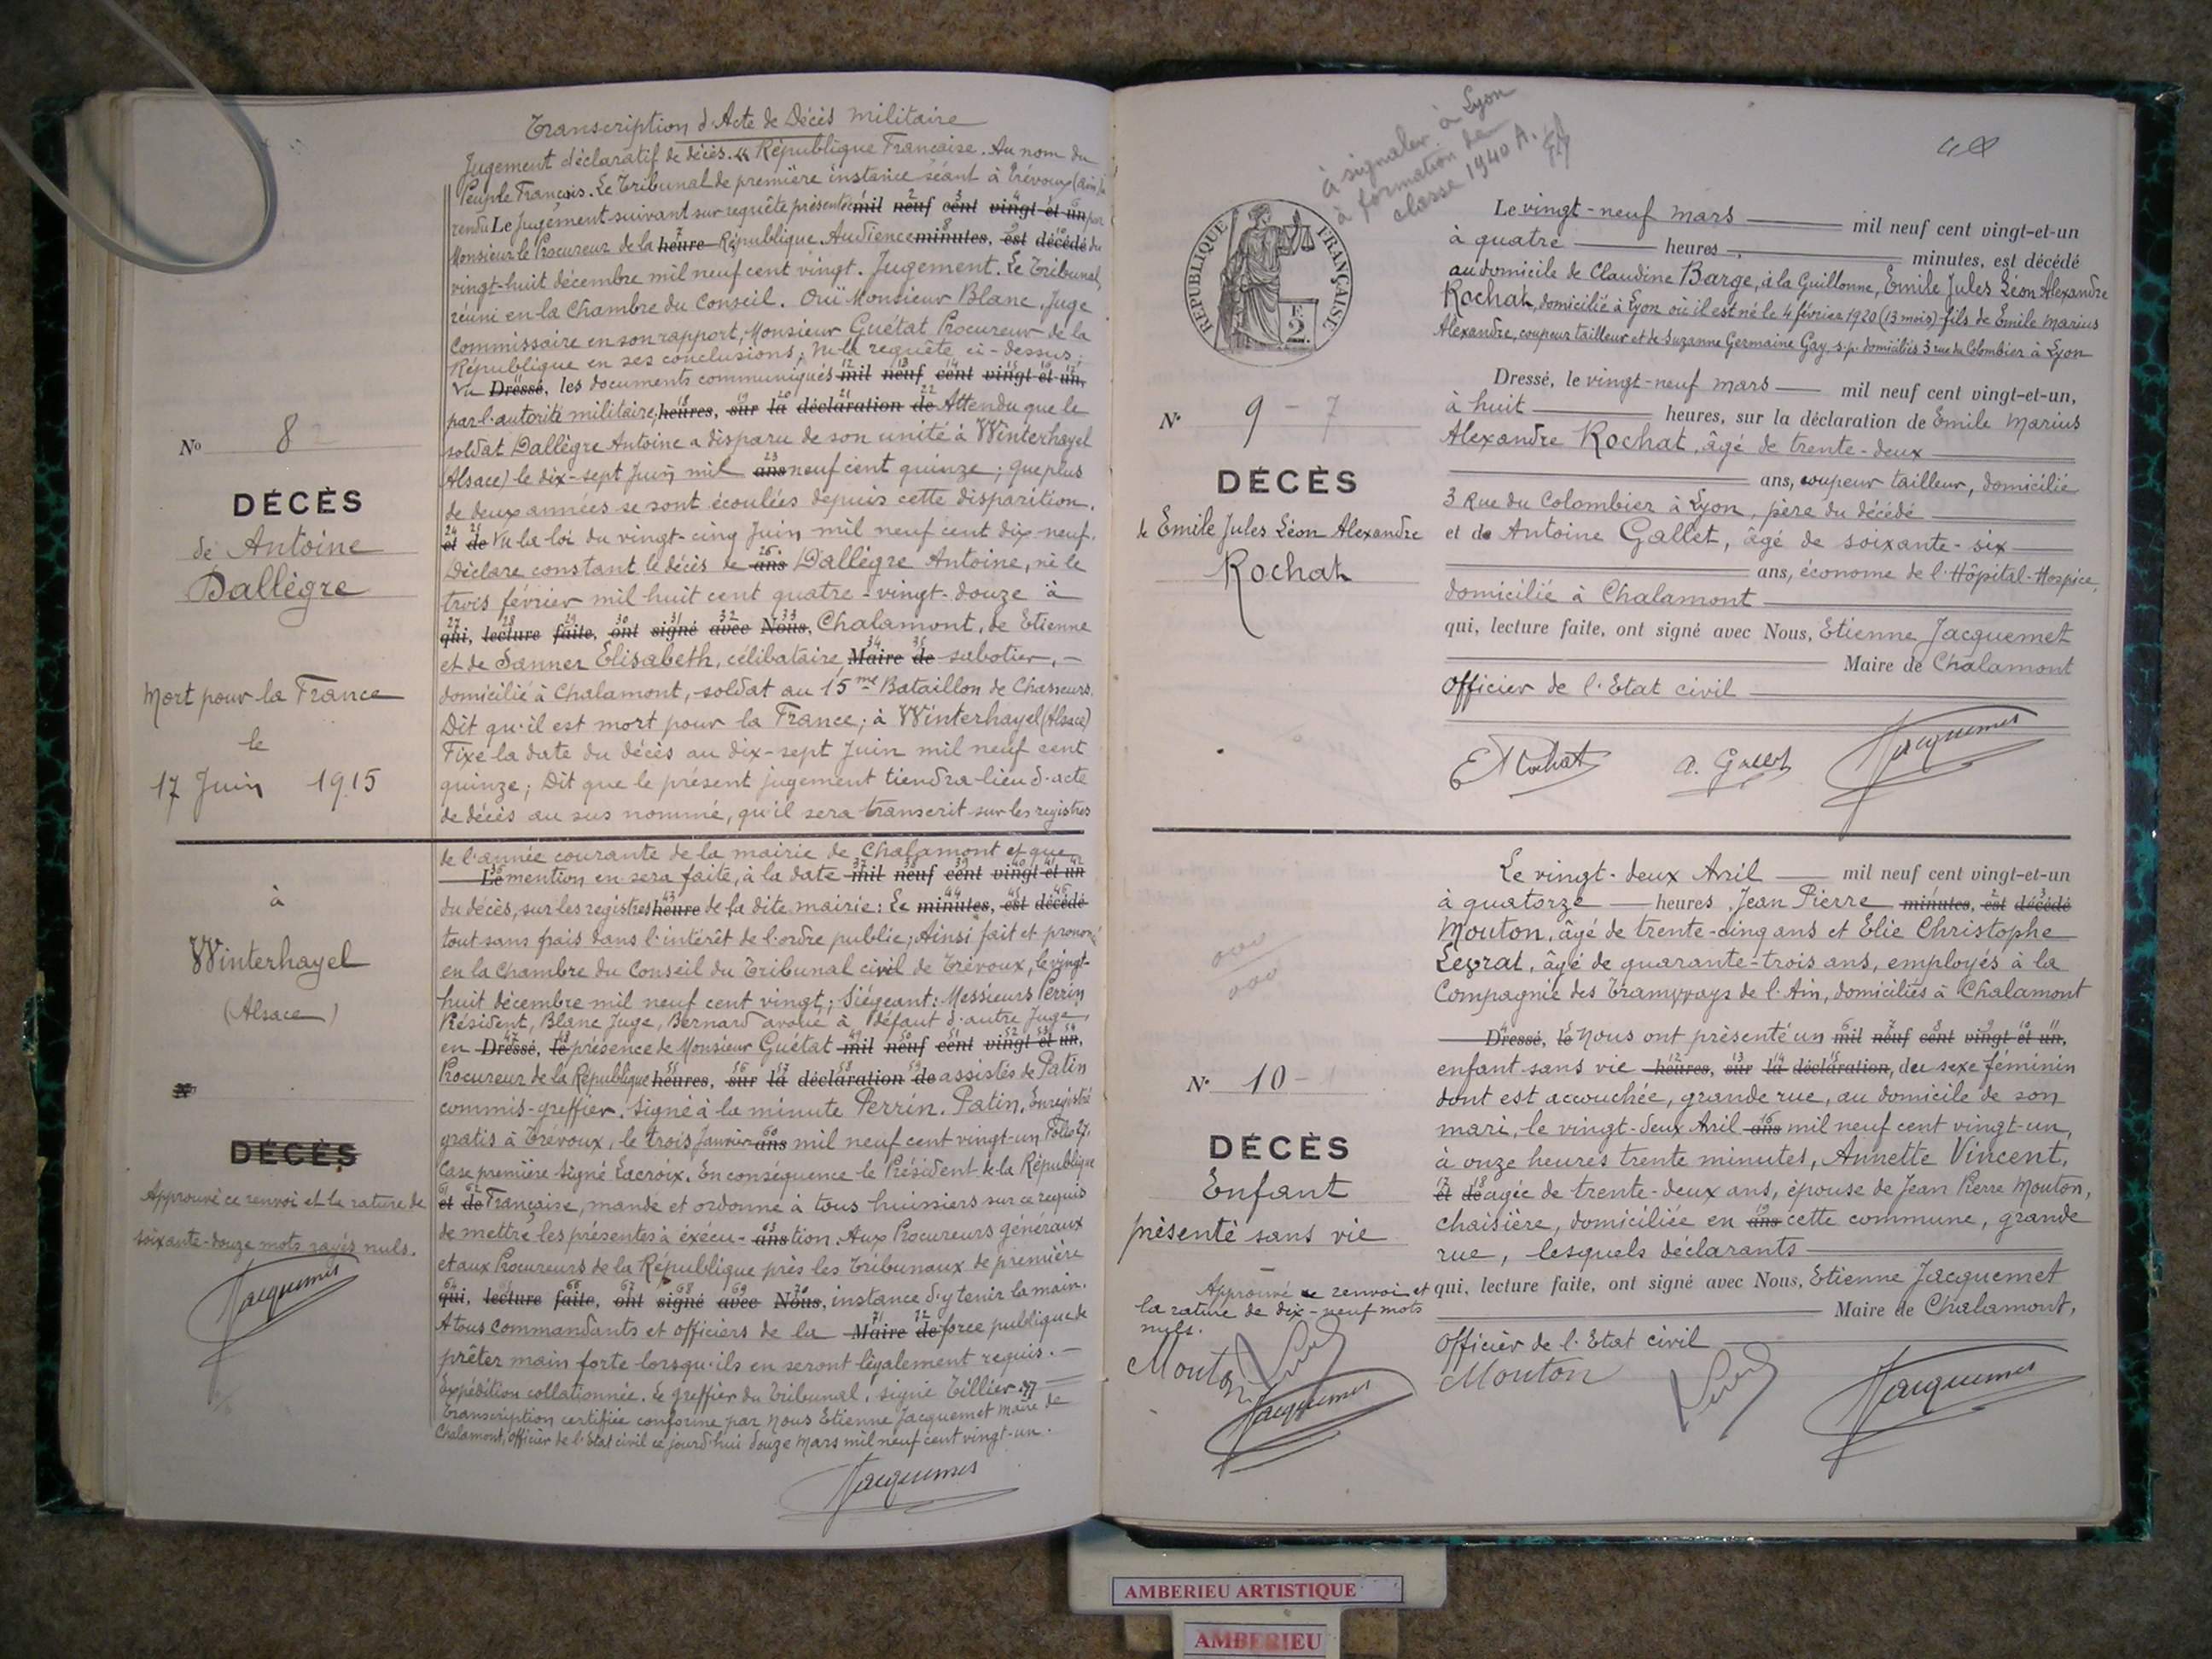 Transcription d'Acte de Décès militaire
Jugement déclaratif de décès. « République Française. Au nom du
Peuple Français. Le Tribunal de première instance séant à Trévoux (Ain) a
rendu Le Jugement suivant sur requête présentée mil neuf cent vingt et un par
Monsieur le Procureur de la heure République. Audience minutes, est décédé du
vingt-huit décembre mil neuf cent vingt. Jugement. Le Tribunal,
réuni en la Chambre du Conseil. Ouï Monsieur Blanc, Juge
Commissaire en son rapport, Monsieur Guétat Procureur de la
République en ses conclusions; Vu la requête ci-dessus;
Vu Dressé, les documents communiqués mil neuf cent vingt et un,
par l'autorité militaire, heures, sur la déclaration de Attendu que le
soldat Dallègre Antoine a disparu de son unité à Winterhagel
(Alsace) le dix-sept Juin mil ans neuf cent quinze; que plus
de deux années se sont écoulées depuis cette disparition.
et de Vu la loi du vingt-cinq Juin mil neuf cent dix neuf.
Déclare constant le décès de ans Dallègre Antoine, né le
trois février mil huit cent quatre-vingt-douze à
qui, lecture faite, ont signé avec Nous, Chalamont, de Etienne
et de Sanner Elisabeth, célibataire, Maire de sabotier, -
domicilié à Chalamont, soldat au 15me Bataillon de Chasseurs.
Dit qu'il est mort pour la France; à Winterhagel (Alsace)
Fixe la date du décès au dix-sept Juin mil neuf cent
quinze; Dit que le présent jugement tiendra lieu d'acte
de décès au sus nommé, qu'il sera transcrit sur les registres
No 8
DÉCÈS
de Antoine
Dallègre
Mort pour la France
le
17 Juin 1915
à
Winterhagel
(Alsace)
No
DÉCÈS
Approuvé ce renvoi et la rature de
soixante-douze mots rayés nuls.
Jacquemet
de l'année courante de la mairie de Chalamont et que
Le mention en sera faite, à la date mil neuf cent vingt et un
du décès, sur les registres heure de la dite mairie: Le minutes, est décédé
tout sans frais dans l'intérêt de l'ordre public; Ainsi fait et prononcé
en la Chambre du Conseil du Tribunal civil de Trévoux, le vingt-
huit décembre mil neuf cent vingt; Siégeant: Messieurs Perrin
Président, Blanc Juge, Bernard avoué à défaut d'autre Juge,
en Dressé, le présence de Monsieur Guétat mil neuf cent vingt et un,
Procureur de la République heures, sur la déclaration de assistés de Patin
commis-greffier. Signé à la minute Perrin. Patin. Enregistré
gratis à Trévoux, le trois Janvier ans mil neuf cent vingt-un Folio 27,
Case première signé Lacroix. En conséquence le Président de la République
et de Française, mande et ordonne à tous huissiers sur ce requis
de mettre les présentes à exécu- ans tion. Aux Procureurs généraux
et aux Procureurs de la République près les Tribunaux de première
qui, lecture faite, ont signé avec Nous, instance d'y tenir la main.
A tous commandants et officiers de la Maire de force publique de
prêter main forte lorsqu'ils en seront légalement requis. -
Expédition collationnée. Le greffier du Tribunal, signé Tillier. »
Transcription certifiée conforme par Nous Etienne Jacquemet Maire de
Chalamont, officier de l'Etat civil ce jourd'hui douze Mars mil neuf cent vingt-un.
Jacquemet
à signaler à Lyon
à formation de
classe 1940 A.
RÉPUBLIQUE FRANÇAISE
E
2.
N° 9 - 7
DÉCÈS
de Emile Jules Léon Alexandre
Rochat
Le vingt-neuf mars mil neuf cent vingt-et-un
à quatre heures minutes, est décédé
au domicile de Claudine Barge, à la Guillonne, Emile Jules Léon Alexandre
Rochat, domicilié à Lyon où il est né le 4 février 1920 (13 mois) fils de Emile Marius
Alexandre, coupeur tailleur et de Suzanne Germaine Gay, s.p. domiciliés 3 rue du Colombier à Lyon
Dressé, le vingt-neuf mars mil neuf cent vingt-et-un,
à huit heures, sur la déclaration de Emile Marius
Alexandre Rochat, âgé de trente-deux
ans, coupeur tailleur, domicilié
3 Rue du Colombier à Lyon, père du décédé
et de Antoine Gallet, âgé de soixante-six
ans, économe de l'Hôpital-Hospice,
domicilié à Chalamont
qui, lecture faite, ont signé avec Nous, Etienne Jacquemet
Maire de Chalamont
Officier de l'Etat civil
E Rochat A. Gallet Jacquemet
N° 10 -
DÉCÈS
Enfant
présenté sans vie
Approuvé ce renvoi et
la rature de dix-neuf mots
nuls.
Mouton
Jacquemet
Le vingt-deux Avril mil neuf cent vingt-et-un
à quatorze heures, Jean Pierre minutes, est décédé
Mouton, âgé de trente-cinq ans et Elie Christophe
Levrat, âgé de quarante-trois ans, employés à la
Compagnie des Tramways de l'Ain, domiciliés à Chalamont
Dressé, le Nous ont présenté un mil neuf cent vingt et un,
enfant sans vie heures, sur la déclaration, de sexe féminin
dont est accouchée, grande rue, au domicile de son
mari, le vingt-deux Avril ans mil neuf cent vingt-un,
à onze heures trente minutes, Annette Vincent,
et de âgée de trente-deux ans, épouse de Jean Pierre Mouton,
chaisière, domiciliée en ans cette commune, grande
rue, lesquels déclarants
qui, lecture faite, ont signé avec Nous, Etienne Jacquemet
Maire de Chalamont,
Officier de l'Etat civil
Mouton Jacquemet
AMBERIEU ARTISTIQUE
AMBERIEU